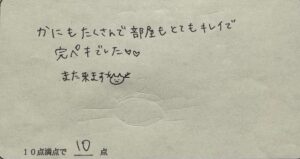 かにもたくさんで部屋もとてもキレイで
完ペキでした♡♡
また来ます
10点満点で 10 点